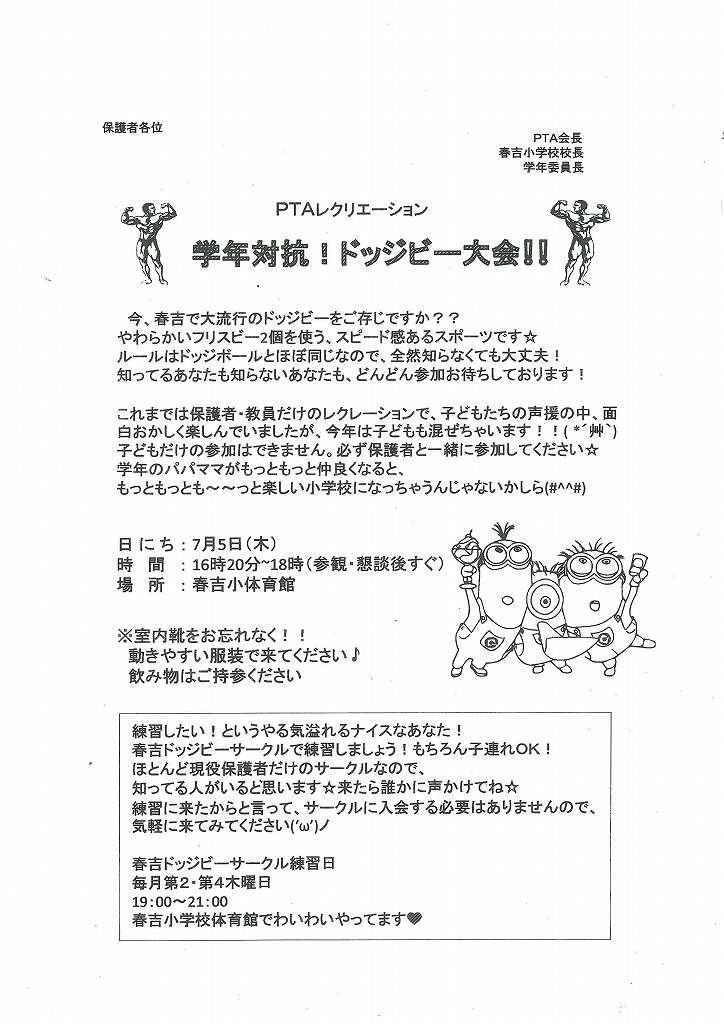 保護者各位
PTA会長
春吉小学校校長
学年委員長
PTAレクリエーション
学年対抗！ドッジビー大会！！
今、春吉で大流行のドッジビーをご存じですか？？
やわらかいフリスビー2個を使う、スピード感あるスポーツです☆
ルールはドッジボールとほぼ同じなので、全然知らなくても大丈夫！
知ってるあなたも知らないあなたも、どんどん参加お待ちしております！
これまでは保護者・教員だけのレクレーションで、子どもたちの声援の中、面
白おかしく楽しんでいましたが、今年は子どもも混ぜちゃいます！！(*´艸`)
子どもだけの参加はできません。必ず保護者と一緒に参加してください☆
学年のパパママがもっともっと仲良くなると、
もっともっとも～～っと楽しい小学校になっちゃうんじゃないかしら(#^^#)
日にち：7月5日（木）
時　間　：16時20分~18時（参観・懇談後すぐ）
場　所　：春吉小体育館
※室内靴をお忘れなく！！
動きやすい服装で来てください♪
飲み物はご持参ください
練習したい！というやる気溢れるナイスなあなた！
春吉ドッジビーサークルで練習しましょう！もちろん子連れOK！
ほとんど現役保護者だけのサークルなので、
知ってる人がいるど思います☆来たら誰かに声かけてね☆
練習に来たからと言って、サークルに入会する必要はありませんので、
気軽に来てみてください('ω')ノ
春吉ドッジビーサークル練習日
毎月第２・第４木曜日
19:00～21:00
春吉小学校体育館でわいわいやってます♥